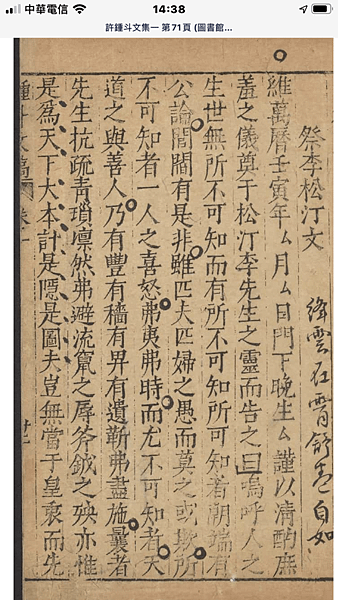 中華電信 14:38
許鍾斗文集一 第71頁 (圖書館...
祭李松汀文
絳雲在霄舒卷自如
維萬曆壬寅年ム月ム日門下晚生ム謹以清酌庶
羞之儀奠于松汀李先生之靈而告之曰嗚呼人之
生世無所不可知而有所不可知所可知者朝端有
公論閭閻有是非雖匹夫匹婦之愚而莫之或欺所
不可知者一人之喜怒弗夷弗時而尤不可知者天
道之與善人乃有豐有穡有畀有遺靳弗盡施曩者
先生抗疏青瑣凛然弗避流竄之辱斧鉞之殃亦惟
是為天下大本計是隱是圖夫豈無當于皇衷而先